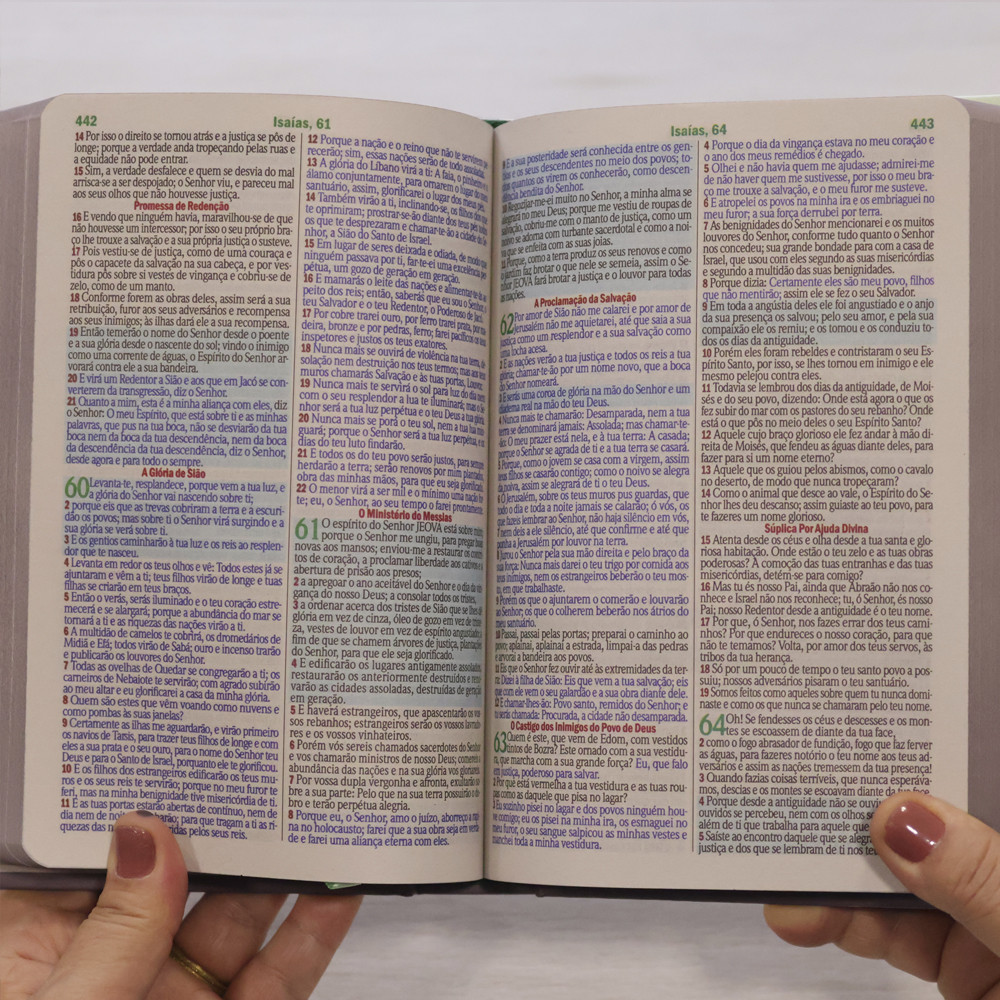 442
Isaías, 61
14 Por isso o direito se tornou atrás e a justiça se pôs de
longe; porque a verdade anda tropeçando pelas ruas e
a equidade não pode entrar.
15 Sim, a verdade desfalece e quem se desvia do mal
arrisca-se a ser despojado; o Senhor viu, e pareceu mal
aos seus olhos que não houvesse justiça.
Promessa de Redenção
16 E vendo que ninguém havia, maravilhou-se de que
não houvesse um intercessor; por isso o seu próprio bra-
ço lhe trouxe a salvação e a sua própria justiça o susteve.
17 Pois vestiu-se de justiça, como de uma couraça e
pôs o capacete da salvação na sua cabeça, e por ves-
tidura pôs sobre si vestes de vingança e cobriu-se de
zelo, como de um manto.
18 Conforme forem as obras deles, assim será a sua
retribuição, furor aos seus adversários e recompensa
aos seus inimigos; às ilhas dará ele a sua recompensa.
19 Então temerão o nome do Senhor desde o poente
e a sua glória desde o nascente do sol; vindo o inimigo
como uma corrente de águas, o Espírito do Senhor ar-
vorará contra ele a sua bandeira.
20 E virá um Redentor a Sião e aos que em Jacó se con-
verterem da transgressão, diz o Senhor.
21 Quanto a mim, esta é a minha aliança com eles, diz
o Senhor: O meu Espírito, que está sobre ti e as minhas
palavras, que pus na tua boca, não se desviarão da tua
boca nem da boca da tua descendência, nem da boca
da descendência da tua descendência, diz o Senhor,
desde agora e para todo o sempre.
A Glória de Sião
60 Levanta-te, resplandece, porque vem a tua luz, e
a glória do Senhor vai nascendo sobre ti;
2 porque eis que as trevas cobriram a terra e a escuri-
dão os povos; mas sobre ti o Senhor virá surgindo e a
sua glória se verá sobre ti.
3 E os gentios caminharão à tua luz e os reis ao resplen-
dor que te nasceu.
4 Levanta em redor os teus olhos e vê: Todos estes já se
ajuntaram e vêm a ti; teus filhos virão de longe e tuas
filhas se criarão em teus braços.
5 Então o verás, serás iluminado e o teu coração estre-
mecerá e se alargará; porque a abundância do mar se
tornará a ti e as riquezas das nações virão a ti.
6 A multidão de camelos te cobrirá, os dromedários de
Midiã e Efá; todos virão de Sabá; ouro e incenso trarão
e publicarão os louvores do Senhor.
7 Todas as ovelhas de Quedar se congregarão a ti; os
carneiros de Nebaiote te servirão; com agrado subirão
ao meu altar e eu glorificarei a casa da minha glória.
8 Quem são estes que vêm voando como nuvens e
como pombas às suas janelas?
9 Certamente as ilhas me aguardarão, e virão primeiro
os navios de Tarsis, para trazer teus filhos de longe e com
eles a sua prata e o seu ouro, para o nome do Senhor teu
Deus e para o Santo de Israel, porquanto ele te glorificou.
10 E os filhos dos estrangeiros edificarão os teus mu-
ros e os seus reis te servirão; porque no meu furor te
feri, mas na minha benignidade tive misericórdia de ti.
11 E as tuas portas estarão abertas de contínuo, nem de
dia nem de noite para que tragam a ti as ri-
quezas das pelos seus reis.
12 Porque a nação e o reino que não te servirem
recerão; sim, essas nações serão de todo assoladas.
13 A glória do Líbano virá a ti: A faia, o pinheiro
álamo conjuntamente, para ornarem o lugar do meu
santuário, assim, glorificarei o lugar dos meus pés.
14 Também virão a ti, inclinando-se, os filhos dos que
te oprimiram; prostrar-se-ão diante dos teus pés todos
os que te desprezaram e chamar-te-ão a cidade do Se-
nhor, a Sião do Santo de Israel.
15 Em lugar de seres deixada e odiada, de modo que
ninguém passava por ti, far-te-ei uma excelência per-
pétua, um gozo de geração em geração.
16 E mamarás o leite das nações e alimentar-te-ás ao
peito dos reis; então, saberás que eu sou o Senhor, o
teu Salvador e o teu Redentor, o Poderoso de Jacó.
17 Por cobre trarei ouro, por ferro trarei prata, por ma-
deira, bronze e por pedras, ferro; farei pacíficos os teus
inspetores e justos os teus exatores.
18 Nunca mais se ouvirá de violência na tua terra, de
solação nem destruição nos teus termos; mas aos teus
muros chamarás Salvação e às tuas portas, Louvor.
19 Nunca mais te servirá o sol para luz do dia nem
com o seu resplendor a lua te iluminará; mas o Se-
nhor será a tua luz perpétua e o teu Deus a tua glória.
20 Nunca mais se porá o teu sol, nem a tua lua min-
guará; porque o Senhor será a tua luz perpétua, e os
dias do teu luto findarão.
21 E todos os do teu povo serão justos, para sempre
herdarão a terra; serão renovos por mim plantados,
obra das minhas mãos, para que eu seja glorificado.
22 O menor virá a ser mil e o mínimo uma nação for-
te; eu, o Senhor, ao seu tempo o farei prontamente.
O Ministério do Messias
61 O espírito do Senhor JEOVÁ está sobre mim
porque o Senhor me ungiu, para pregar boas
novas aos mansos; enviou-me a restaurar os contri-
tos de coração, a proclamar liberdade aos cativos e
abertura de prisão aos presos;
2 a apregoar o ano aceitável do Senhor e o dia da vin-
gança do nosso Deus; a consolar todos os tristes,
3 a ordenar acerca dos tristes de Sião que se lhes dê
glória em vez de cinza, óleo de gozo em vez de tris
za, vestes de louvor em vez de espírito angustiado, a
fim de que se chamem árvores de justiça, plantações
do Senhor, para que ele seja glorificado.
4 E edificarão os lugares antigamente assolados,
restaurarão os anteriormente destruídos e reno-
varão as cidades assoladas, destruídas de geração
em geração.
5 E haverá estrangeiros, que apascentarão os vos-
sos rebanhos; estrangeiros serão os vossos lavrado-
res e os vossos vinhateiros.
6 Porém vós sereis chamados sacerdotes do Senhor
e vos chamarão ministros de nosso Deus; comereis a
abundância das nações e na sua glória vos gloriareis.
7 Por vossa dupla vergonha e afronta, exultarão so-
bre a sua parte: Pelo que na sua terra possuirão o do-
bro e terão perpétua alegria.
8 Porque eu, o Senhor, amo o juízo, aborreço a rapi-
na no holocausto; farei que a sua obra seja em verda-
de e farei uma aliança eterna com eles.
Isaías, 64
443
9 E a sua posteridade será conhecida entre os gen-
tios e os seus descendentes no meio dos povos; to-
dos quantos os virem os conhecerão, como descen-
dência bendita do Senhor.
10 Regozijar-me-ei muito no Senhor, a minha alma se
alegrará no meu Deus; porque me vestiu de roupas de
salvação, cobriu-me com o manto de justiça, como um
noivo se adorna com turbante sacerdotal e como a noi-
va que se enfeita com as suas joias.
11 Porque, como a terra produz os seus renovos e como
o jardim faz brotar o que nele se semeia, assim o Se-
nhor JEOVÁ fará brotar a justiça e o louvor para todas
as nações.
A Proclamação da Salvação
62 Por amor de Sião não me calarei e por amor de
Jerusalém não me aquietarei, até que saia a sua
justiça como um resplendor e a sua salvação como
uma tocha acesa.
2 E as nações verão a tua justiça e todos os reis a tua
glória; chamar-te-ão por um nome novo, que a boca
do Senhor nomeará.
3 E serás uma coroa de glória na mão do Senhor e um
diadema real na mão do teu Deus.
4 Nunca mais te chamarão: Desamparada, nem a tua
terra se denominará jamais: Assolada; mas chamar-te-
ão: O meu prazer está nela, e à tua terra: A casada;
porque o Senhor se agrada de ti e a tua terra se casará.
5 Porque, como o jovem se casa com a virgem, assim
teus filhos se casarão contigo; como o noivo se alegra
da noiva, assim se alegrará de ti o teu Deus.
6 Ó Jerusalém, sobre os teus muros pus guardas, que
todo o dia e toda a noite jamais se calarão; ó vós, os
que fazeis lembrar ao Senhor, não haja silêncio em vós,
7 nem deis a ele silêncio, até que confirme e até que
ponha a Jerusalém por louvor na terra.
8 Jurou o Senhor pela sua mão direita e pelo braço da
sua força: Nunca mais darei o teu trigo por comida aos
teus inimigos, nem os estrangeiros beberão o teu mos-
to, em que trabalhaste.
9 Porém os que o ajuntarem o comerão e louvarão
ao Senhor; os que o colherem beberão nos átrios do
meu santuário.
10 Passai, passai pelas portas; preparai o caminho ao
povo; aplainai, aplainai a estrada, limpai-a das pedras
e arvorai a bandeira aos povos.
11 Eis que o Senhor fez ouvir até às extremidades da ter-
ra: Dizei à filha de Sião: Eis que vem a tua salvação; eis
que com ele vem o seu galardão e a sua obra diante dele.
12 E chamar-lhes-ão: Povo santo, remidos do Senhor; e
tu serás chamada: Procurada, a cidade não desamparada.
O Castigo dos Inimigos do Povo de Deus
63 Quem é este, que vem de Edom, com vestidos
tintos de Bozra? Este ornado com a sua vestidu-
ra, que marcha com a sua grande força? Eu, que falo
em justiça, poderoso para salvar.
2 Por que está vermelha a tua vestidura e as tuas rou-
pas como as daquele que pisa no lagar?
3 Eu sozinho pisei no lagar e dos povos ninguém hou-
ve comigo; eu os pisei na minha ira, os esmaguei no
meu furor, o seu sangue salpicou as minhas vestes e
manchei toda a minha vestidura.
4 Porque o dia da vingança estava no meu coração e
o ano dos meus remédios é chegado.
5 Olhei e não havia quem me ajudasse; admirei-me
de não haver quem me sustivesse, por isso o meu bra-
ço me trouxe a salvação, e o meu furor me susteve.
6 E atropelei os povos na minha ira e os embriaguei no
meu furor; a sua força derrubei por terra.
7 As benignidades do Senhor mencionarei e os muitos
louvores do Senhor, conforme tudo quanto o Senhor
nos concedeu; sua grande bondade para com a casa de
Israel, que usou com eles segundo as suas misericórdias
e segundo a multidão das suas benignidades.
8 Porque dizia: Certamente eles são meu povo, filhos
que não mentirão; assim ele se fez o seu Salvador.
9 Em toda a angústia deles ele foi angustiado e o anjo
da sua presença os salvou; pelo seu amor, e pela sua
compaixão ele os remiu; e os tomou e os conduziu to-
dos os dias da antiguidade.
10 Porém eles foram rebeldes e contristaram o seu Es-
pírito Santo, por isso, se lhes tornou em inimigo e ele
mesmo pelejou contra eles.
11 Todavia se lembrou dos dias da antiguidade, de Moi-
sés e do seu povo, dizendo: Onde está agora o que os
fez subir do mar com os pastores do seu rebanho? Onde
está o que pôs no meio deles o seu Espírito Santo?
12 Aquele cujo braço glorioso ele fez andar à mão di-
reita de Moisés, que fendeu as águas diante deles, para
fazer para si um nome eterno?
13 Aquele que os guiou pelos abismos, como o cavalo
no deserto, de modo que nunca tropeçaram?
14 Como o animal que desce ao vale, o Espírito do Se-
nhor lhes deu descanso; assim guiaste ao teu povo, para
te fazeres um nome glorioso.
Súplica Por Ajuda Divina
15 Atenta desde os céus e olha desde a tua santa e glo-
riosa habitação. Onde estão o teu zelo e as tuas obras
poderosas? A comoção das tuas entranhas e das tuas
misericórdias, detém-se para comigo?
16 Mas tu és nosso Pai, ainda que Abraão não nos co-
nhece e Israel não nos reconhece; tu, ó Senhor, és nosso
Pai; nosso Redentor desde a antiguidade é o teu nome.
17 Por que, ó Senhor, nos fazes errar dos teus cami-
nhos? Por que endureces o nosso coração, para que
não te temamos? Volta, por amor dos teus servos, às
tribos da tua herança.
18 Só por um pouco de tempo o teu santo povo a pos-
suiu; nossos adversários pisaram o teu santuário.
19 Somos feitos como aqueles sobre quem tu nunca domi-
naste e como os que nunca se chamaram pelo teu nome.
64 Oh! Se fendesses os céus e descesses e os mon-
tes se escoassem de diante da tua face,
2 como o fogo abrasador de fundição, fogo que faz ferver
as águas, para fazeres notório o teu nome aos teus ad-
versários e assim as nações tremessem da tua presença!
3 Quando fazias coisas terríveis, que nunca esperáva-
mos, descias e os montes se escoavam diante da tua face.
4 Porque desde a antiguidade não se ouviu
ouvidos se percebeu, nem com os olhos se
além de ti que trabalha para aquele que
5 Saíste ao encontro daquele que se alegra
justiça e dos que se lembram de ti nos teus